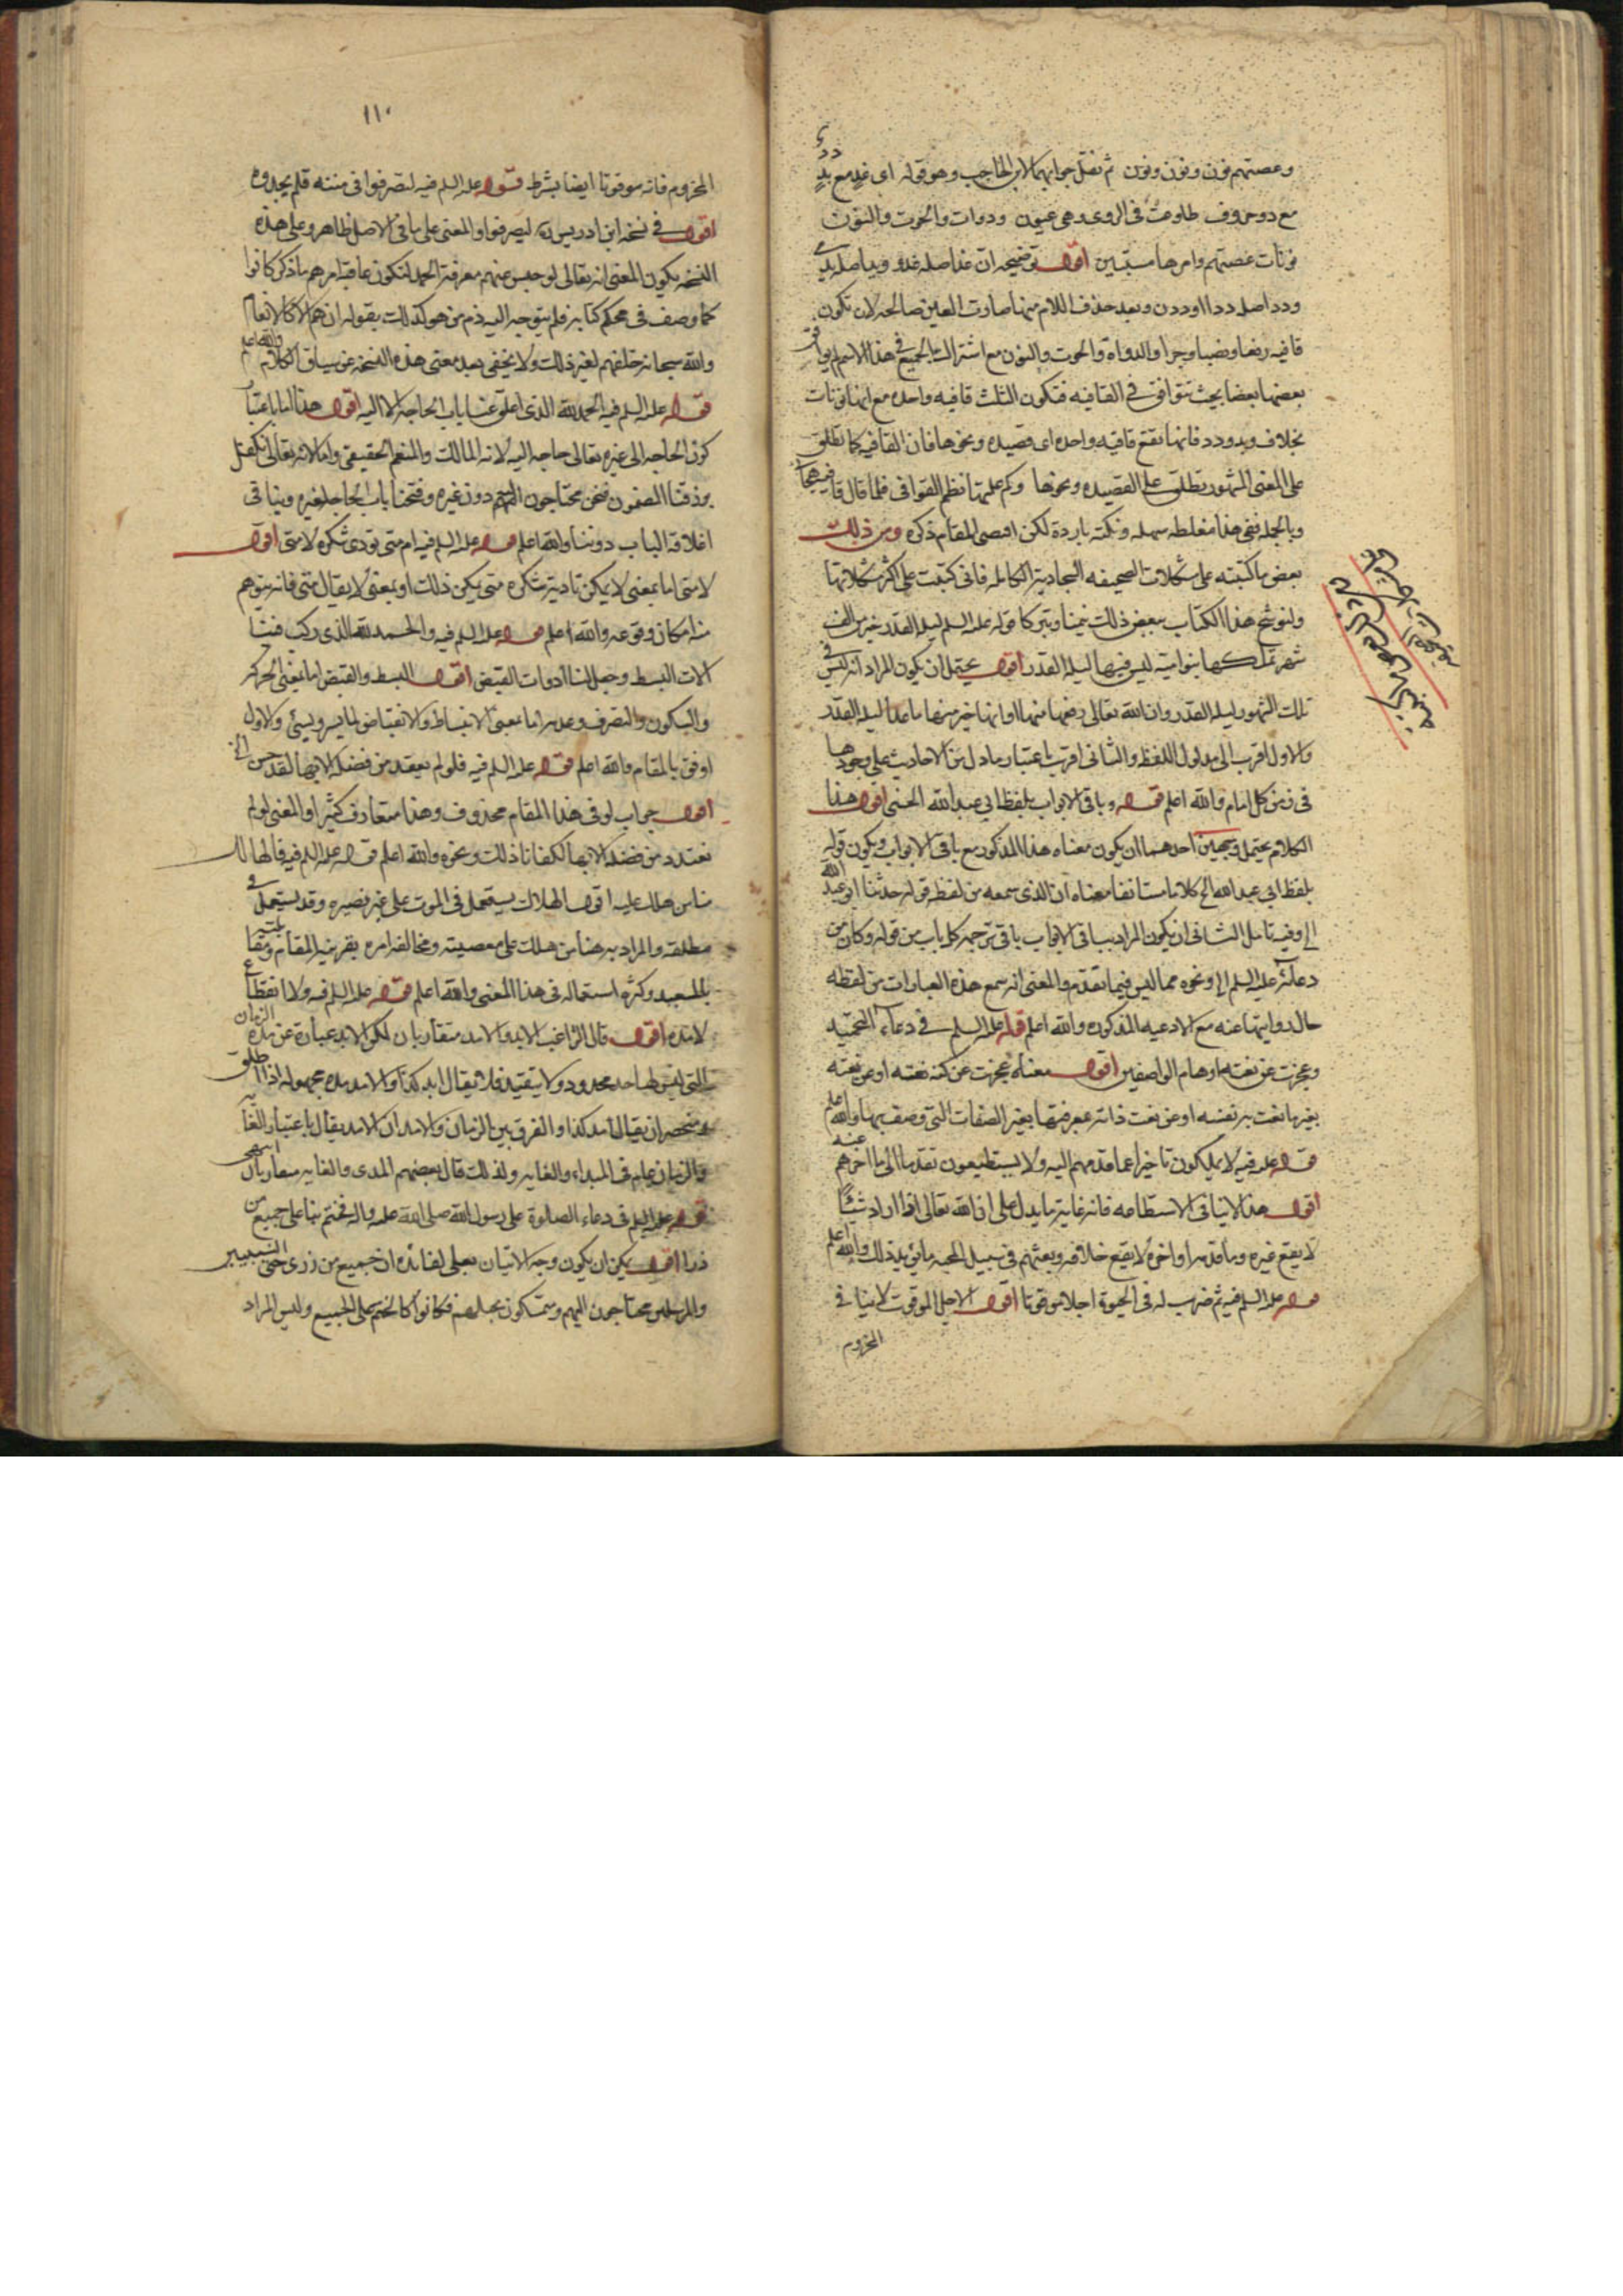 وعصتهم نون ونون ونون ثم نقل جوابها لابن الحاجب وهو قوله اى غد مع يد
مع دد وحروف طاوعت فى الروى وهى عيون ودوات والحوت والنون
نونات عصتهم وامرها مستبين اقول توضيحه ان غدا اصله غدو ويد اصله يدى
ودد اصله ددا او ددن وبعد حذف اللام منها صارت العين صالحة لان تكون
قافيه رفعا ونصبا وجرا والدواة والحوت والنون مع اشتراك الجميع فى هذا الاسم لم يوافق
بعضها بعضا بحيث تتوافق فى القافيه فتكون الثلث قافيه واحده مع انها نونات
بخلاف يد ودد فانها تقع قافيه واحده اى قصيده ونحوها فان القافيه كما تطلق
على المعنى المشهور تطلق على القصيده ونحوها وكم علمته نظم القوافى فلما قال قافية هجانى
وبالجمله ففى هذا مغلطه سهله ونكته بارده لكن اقتضى المقام ذكره ومن ذلك
بعض ما كتبته على مشكلات الصحيفه السجاديه الكامله فانى كتبت على اكثر مشكلاتها
ولنوشح هذا الكتاب ببعض ذلك تيمنا وتبركا قوله عليه السلم ليلة القدر خير من الف
شهر تملكها بنو اميه ليس فيها ليلة القدر اقول يحتمل ان يكون المراد انه ليس فى
تلك الشهور ليلة القدر وان الله تعالى رفعها منها او انها خير منها ما عدا ليلة القدر
والاول اقرب الى مدلول اللفظ والثانى اقرب باعتبار ما دل من الاحاديث على وجودها
فى زمن كل امام والله اعلم قوله وباقى الابواب بلفظ ابى عبد الله الحسنى اقول هذا
الكلام يحتمل وجهين احدهما ان يكون معناه هذا المذكور مع باقى الابواب ويكون قوله
بلفظ ابى عبد الله الخ كلاما مستانفا معناه ان الذى سمعه من لفظه قوله حدثنا ابو عبد الله
الخ وفيه تامل الثانى ان يكون المراد بباقى الابواب باقى ترجمة كل باب من قوله وكان من
دعائه عليه السلم الخ ونحوه مما ليس فيما تقدم والمعنى انه سمع هذه العبارات من لفظه
حال روايتها عنه مع الادعيه المذكوره والله اعلم قوله عليه السلم فى دعاء التحميد
وعجزت عن نعته اوهام الواصفين اقول معناه عجزت عن كنه نعته او عن نعته
بغير ما نعت به نفسه او عن نعت ذاته بمعرفتها بغير الصفات التى وصف بها والله اعلم
قوله عليه فيه لا يملكون تاخيرا عما قدمهم اليه ولا يستطيعون تقدما الى ما اخرهم عنه
اقول هذا لا ينافى الاستطاعه فانه غاية ما يدل على ان الله تعالى اذا اراد شيئا
لا يقع غيره وما قدمه او اخره لا يقع خلافه وبعثهم فى سبيل المحبه ما يؤيد ذلك والله اعلم
قوله عليه السلم فيه ثم ضرب له فى الحيوة اجلا موقوتا اقول الاجل الموقوت لا ينافى
المخزوم
١١٠
المخزوم فانه موقوتا ايضا بشرط قوله عليه السلم فيه لتصرفوا فى مننه فلم يحمدوه
اقول فى نسخة ابن ادريس ره ليصرفوا والمعنى على ما فى الاصل ظاهر وعلى هذه
النسخه يكون المعنى انه تعالى لو حبس عنهم معرفة الحمد لتكون عاقبة امرهم ما ذكر كانوا
كما وصف فى محكم كتابه فلم يتوجه اليه ذم من هو كذلك بقوله ان هم الا كالانعام
والله سبحانه خلقهم لغير ذلك ولا يخفى بعد معنى هذه النسخه عن سياق الكلام والله اعلم
قوله عليه السلم فيه الحمد لله الذى اغلق عنا باب الحاجه الا اليه اقول هذا اما باعتبار
كون الحاجه الى غيره تعالى حاجه اليه لانه المالك والمنعم الحقيقى واما لانه تعالى تكفل
برزقنا المضمون فنحن محتاجون اليه دون غيره وفتحنا باب الحاجه لغيره وينافى
اغلاقه الباب دوننا والله اعلم قوله عليه السلم فيه ام متى نؤدى شكره لا متى اقول
لا متى اما بمعنى لا يمكن تادية شكره متى يمكن ذلك او بمعنى لا يقال متى فانه يتوهم
منه امكان وقوعه والله اعلم قوله عليه السلم فيه والحمد لله الذى ركب فينا
الات البسط وجعل لنا ادوات القبض اقول البسط والقبض اما بمعنى الحركه
والسكون والتصرف وعدمه اما بمعنى الانبساط والانقباض لما يسر ويسئ والاول
اوفق بالمقام والله اعلم قوله عليه السلم فيه فلو لم نعتدد من فضله الا بها لقد حسن الخ
اقول جواب لو فى هذا المقام محذوف وهذا متعارف كثير او المعنى لو لم
نعتدد من فضله الا بها لكفانا ذلك ونحوه والله اعلم قوله عليه السلم فيه فالهالك
منا من هلك عليه اقول الهلاك يستعمل فى الموت على غير بصيره وقد يستعمل فى
مطلقه والمراد به هنا من هلك على معصيته ومخالفة امره بقرينة المقام ومقابلته
بالسعيد وكثرة استعماله فى هذا المعنى والله اعلم قوله عليه السلم فيه ولا انقطاع
لامده اقول قال الراغب الابد والامد متقاربان لكن الابد عبارة عن مدة الزمان
التى ليس لها حد محدود ولا يتقيد فلا يقال ابد كذا والامد مدة مجهوله اذا اطلق
وينحصر ان يقال امد كذا والفرق بين الزمان والامد ان الامد يقال باعتبار الغايه
والزمان عام فى المبداء والغايه ولذلك قال بعضهم المدى والغايه متقاربان انتهى
قوله عليه السلم فى دعاء الصلوة على رسول الله صلى الله عليه واله فختم بنا على جميع من
ذرا اقول يمكن ان يكون وجه الاتيان بعلى لفائده ان جميع من ذرى حتى النبيين
والمرسلين محتاجون اليهم ومتمسكون بحبلهم فكانوا كالختم على الجميع وليس المراد